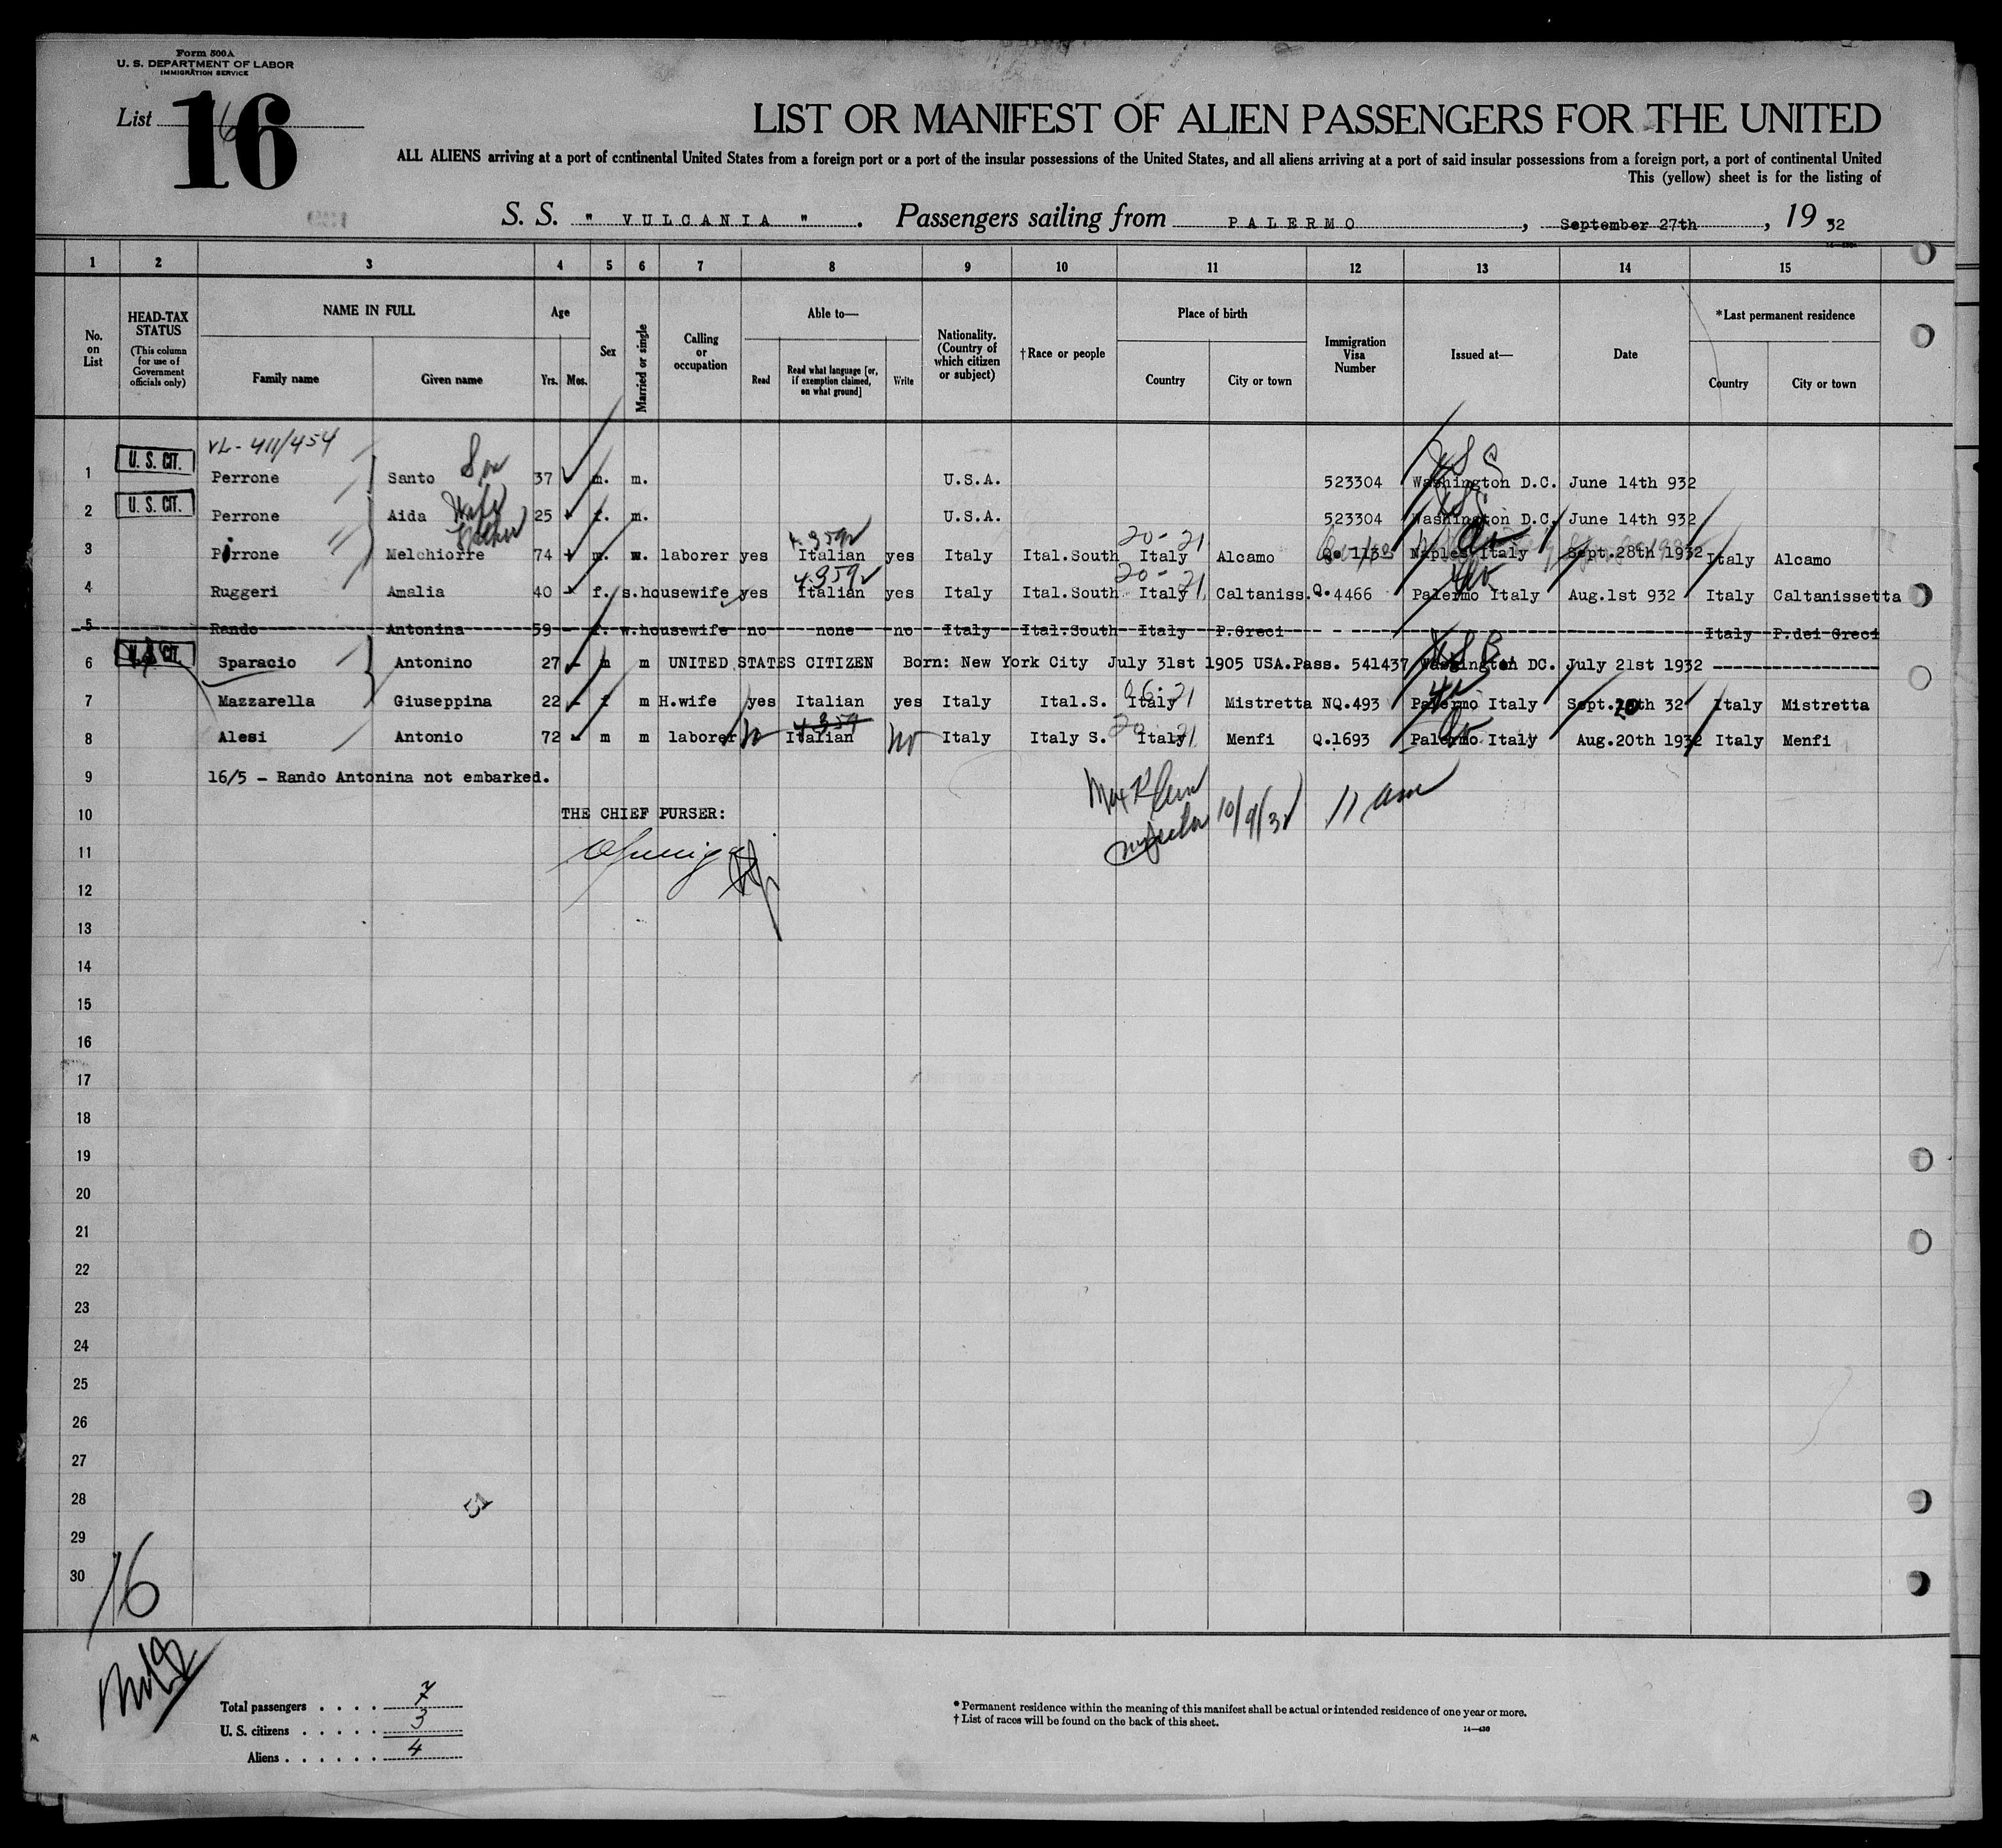 Form 500A
U. S. DEPARTMENT OF LABOR
IMMIGRATION SERVICE
List 16
16
LIST OR MANIFEST OF ALIEN PASSENGERS FOR THE UNITED
ALL ALIENS arriving at a port of continental United States from a foreign port or a port of the insular possessions of the United States, and all aliens arriving at a port of said insular possessions from a foreign port, a port of continental United
This (yellow) sheet is for the listing of
S. S. " VULCANIA ". Passengers sailing from PALERMO, September 27th, 1932
1 2 3 4 5 6 7 8 9 10 11 12 13 14 15
No. on List
HEAD-TAX STATUS (This column for use of Government officials only)
NAME IN FULL Family name Given name
Age Yrs. Mos.
Sex
Married or single
Calling or occupation
Able to— Read Read what language [or, if exemption claimed, on what ground] Write
Nationality. (Country of which citizen or subject)
†Race or people
Place of birth Country City or town
Immigration Visa Number
Issued at—
Date
*Last permanent residence Country City or town
VL-411/454
1 U. S. CIT. Perrone Santo Son 37 m. m. U.S.A. 523304 Washington D.C. June 14th 932
2 U. S. CIT. Perrone Aida Wife 25 f. m. U.S.A. 523304 Washington D.C. June 14th 932
3 Pirrone Melchiorre Father 74 m. w. laborer yes Italian yes Italy Ital.South Italy Alcamo Q. 113 Naples Italy Sept.28th 1932 Italy Alcamo
4 Ruggeri Amalia 40 f. s. housewife yes Italian yes Italy Ital.South Italy Caltaniss. Q.4466 Palermo Italy Aug.1st 932 Italy Caltanissetta
5 Rando Antonina 59 f. w. housewife no none no Italy Ital.South Italy P.Greci Italy P.dei Greci
6 U. S. CIT. Sparacio Antonino 27 m m UNITED STATES CITIZEN Born: New York City July 31st 1905 USA.Pass. 541437 Washington DC. July 21st 1932
7 Mazzarella Giuseppina 22 f m H.wife yes Italian yes Italy Ital.S. Italy Mistretta NQ.493 Palermo Italy Sept.20th 32 Italy Mistretta
8 Alesi Antonio 72 m m laborer no Italian no Italy Italy S. Italy Menfi Q.1693 Palermo Italy Aug.20th 1932 Italy Menfi
9 16/5 - Rando Antonina not embarked.
Max Klein
Inspector 10/9/32 11 am
10 THE CHIEF PURSER:
11
12
13
14
15
16
17
18
19
20
21
22
23
24
25
26
27
28
29
30
16
Total passengers . . . . 7
U. S. citizens . . . . . 3
Aliens . . . . . . 4
* Permanent residence within the meaning of this manifest shall be actual or intended residence of one year or more.
† List of races will be found on the back of this sheet.
14—430